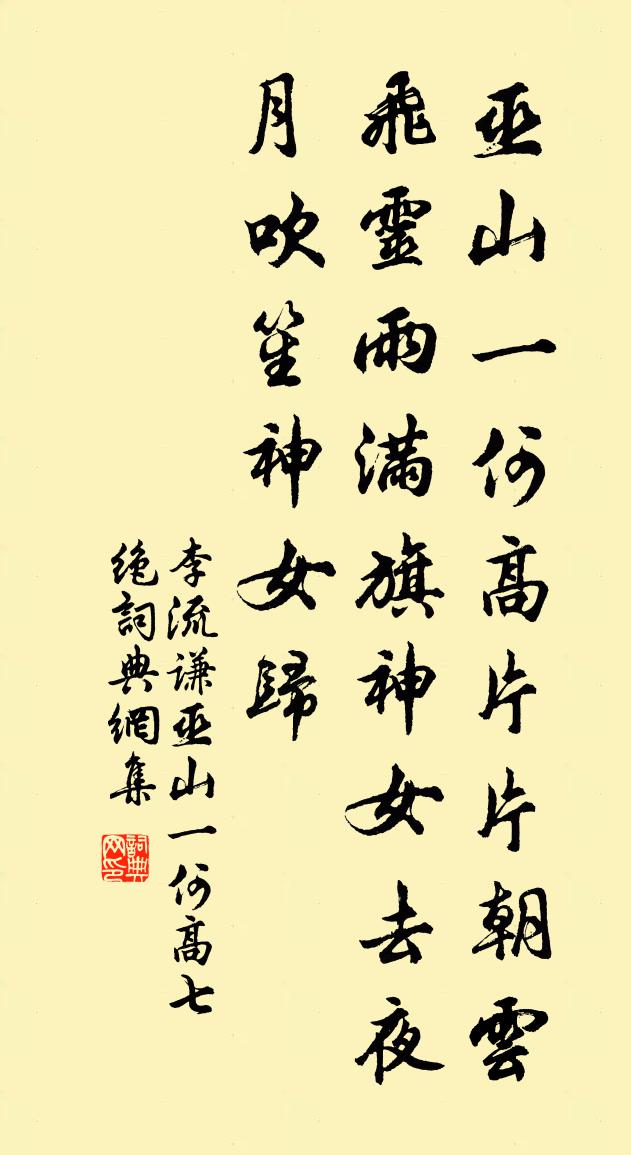 巫山一何高片片朝雲
飛靈雨滿旗神女去夜
月吹笙神女歸
李流谦巫山一何高七
绝詞典網集
詞典
网印